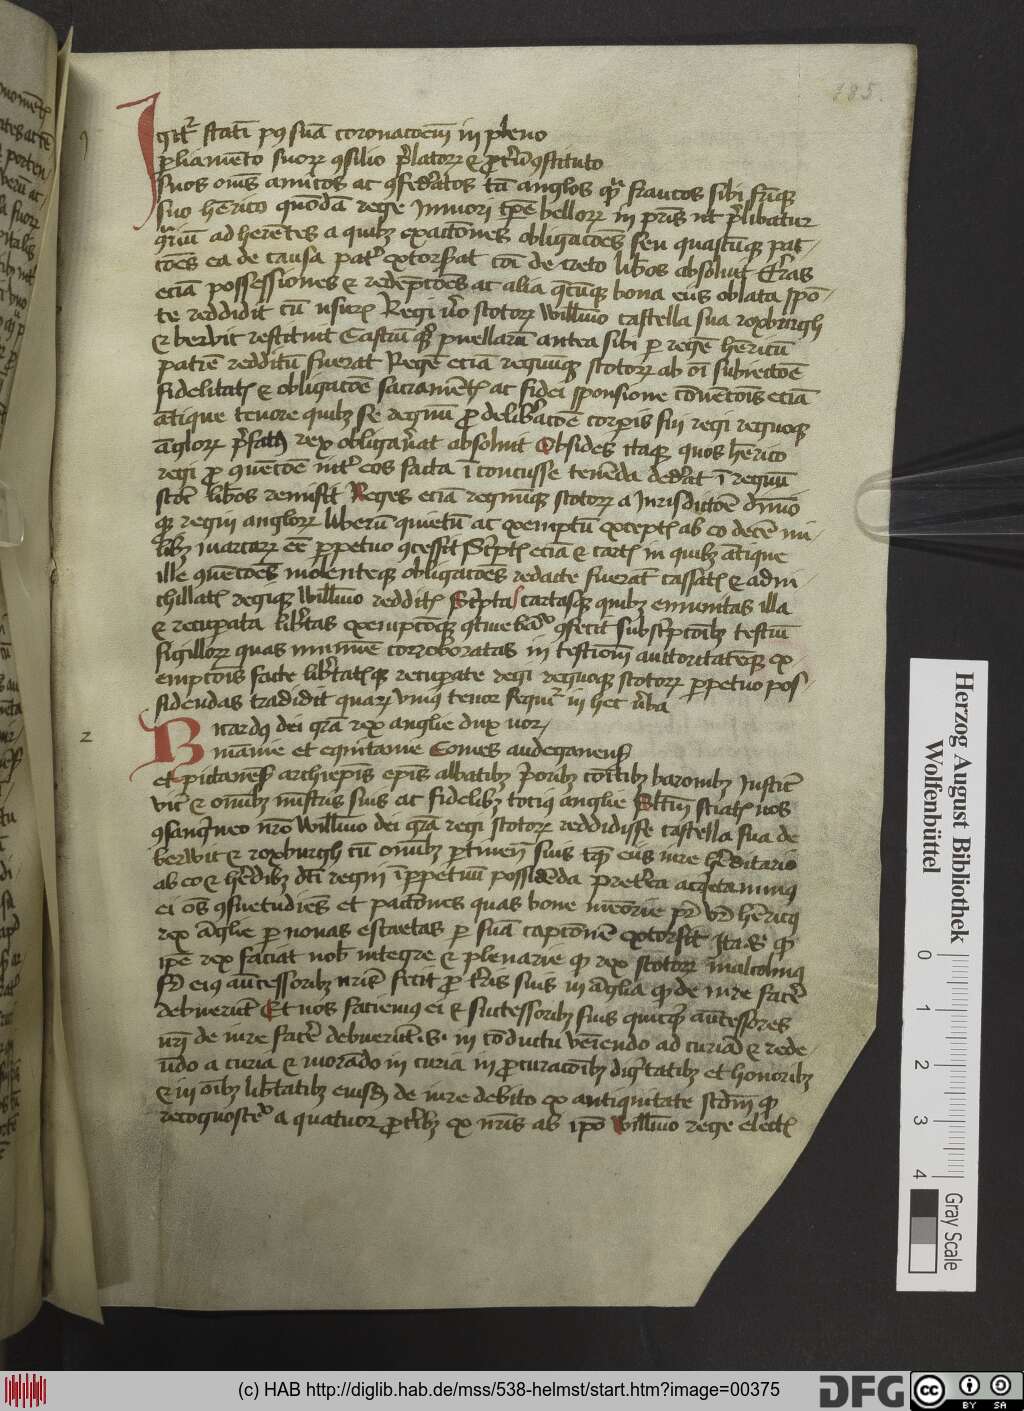 185.
Igitur statim post suam coronacoem in pleno
parliamento suorum consilio prelatorum et procerum constituto
suos omnes amicos ac confederatos tam anglos quam francos sibi fratrique
suo henrico quondam rege Iuniori tempore bellorum in patris ut prelibatur
ad herentes a quibus exactiones obligaciones seu quascumque pac
ciones ea de causa pater extorserat decreto liberos absoluit Terras
eciam possessiones et redempciones ac alia quecumque bona eius oblata spon
te reddidit cum usuris Regi vero scotorum Willelmo castella sua roxburgh
et berwic restituit Castrum quod puellarum antea sibi per regem henricum
patrem redditum fuerat Regem eciam regnumque scotorum ab omni subiectione
fidelitatis et obligacione sacramentis ac fidei sponsione convencionis eciam
antique tenore quibus se regnum pro deliberacione corporis sui regi regnoque
anglorum prefatus rex obligaverat absoluit Obsides itaque quos henrico
regi pro quescione inter eos facta inconcusse tenenda dederat in regnum
scocie liberos remisit Reges eciam regnumque scotorum a Iurisdictione dominio
que regni anglorum liberum quietum ac exemptum exceptis ab eo decem mi
libus marcarum esse perpetuo concessit Scriptis eciam et cartis in quibus antique
ille convenciones molenteque obligaciones redacte fuerant cassatis et adni
chillatis regique Willelmo redditis Scripta cartasque quibus emunitas illa
et recuperata libertas exempcioque continebatur confecit subscripcionibus testium
sigillorum quas munimine corroboratas in testimonium auctoritatemque ex
empcionis facte libertatisque recuperate regi regnoque scotorum perpetuo pos
sidendas tradidit quarum unius tenor sequitur in hec verba
2
Ricardus dei gratia rex anglie dux nor
manie et equitanie Comes andegauensis
et pictauensis archiepiscopis episcopis abbatibus prioribus comitibus baronibus Iusticiis
vic et omnibus ministris suis ac fidelibus tocius anglie Salutem sciatis nos
consanguineo nostro Willelmo dei gratia regi scotorum reddidisse castella sua de
berwic et roxburgh cum omnibus pertinenciis suis tanquam eius iure hereditario
ab eo et heredibus dicti regni imperpetuum possidenda preterea acquietauimus
ei omnes consuetudines et pacciones quas bone memorie pater noster henricus
rex anglie per nouas escaetas per suam capcionem extorsit Ita scilicet quod
ipse rex faciat nobis integre et plenarie quod rex scotorum malcolmus
frater eius antecessoribus nostris fecit pro terris suis in anglia quod de iure facere
debuerunt Et nos faciemus ei et successoribus suis quicquid antecessores
nostri de iure facere debuerunt .s. in conductu veniendo ad curiam et rede
undo a curia et morando in curia in procuracionibus dignitatibus et honoribus
et in omnibus libertatibus eiusdem de iure debito ex antiquitate secundum quod
recognoscetur a quatuor proceribus ex nostris ab ipso Willelmo rege electis
Herzog August Bibliothek
Wolfenbüttel
0 1 2 3 4
Gray Scale
(c) HAB http://diglib.hab.de/mss/538-helmst/start.htm?image=00375
DFG
cc BY SA